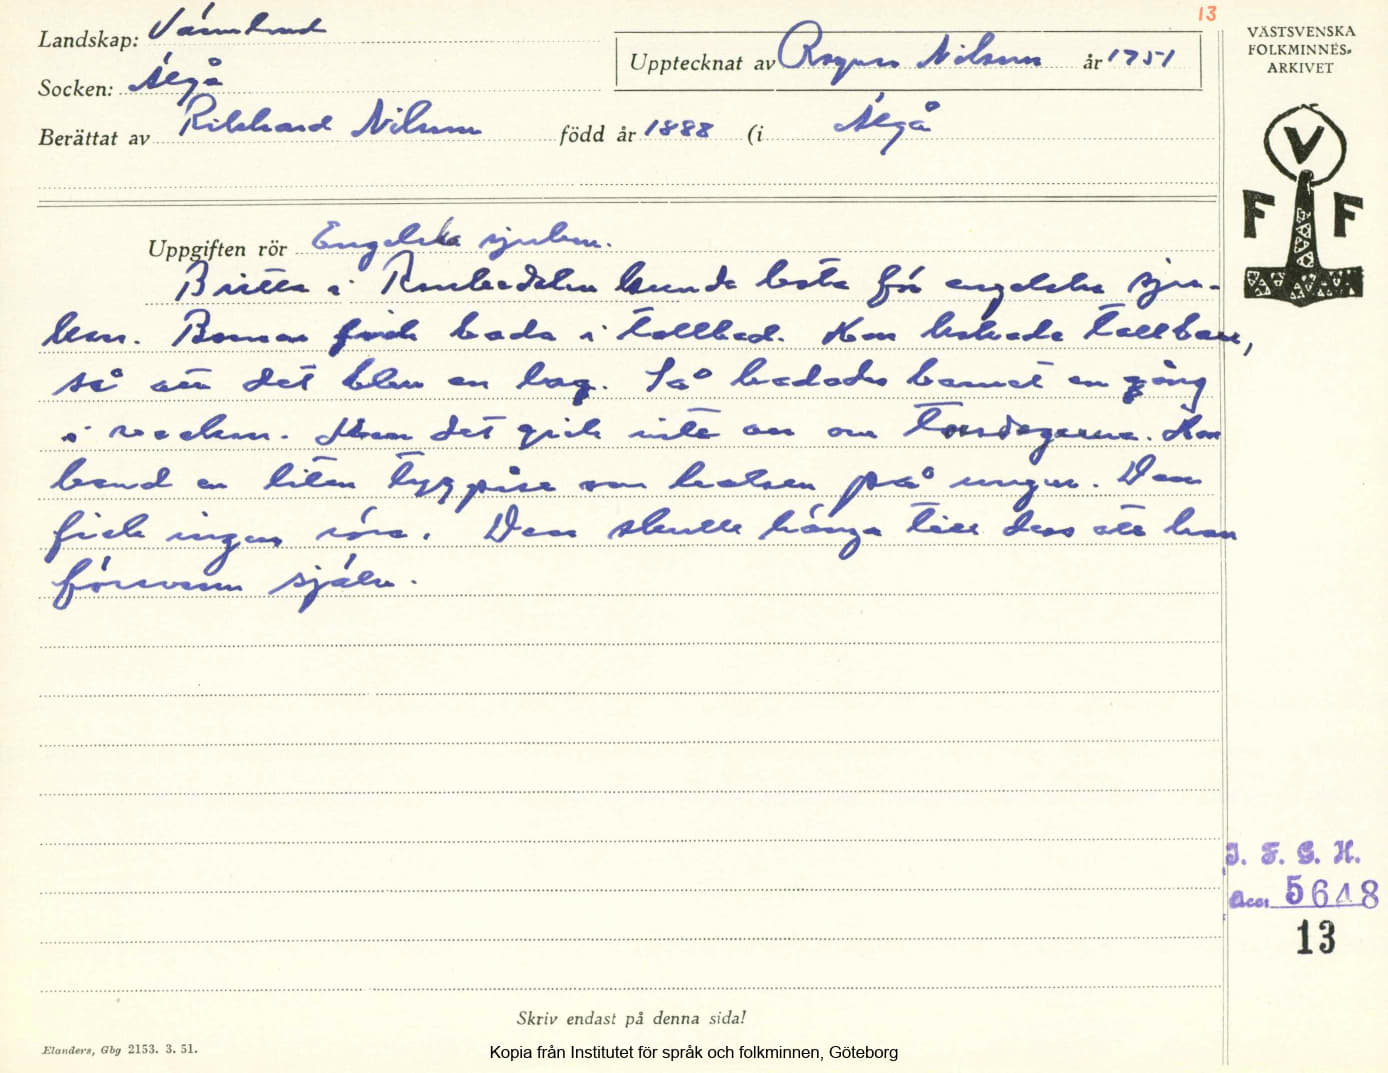 13
Landskap: Värmland
Socken: Älgå
Upptecknat av Ragnar Nilsson år 1951
Berättat av Rikhard Nilsson född år 1888 (i Älgå
VÄSTSVENSKA
FOLKMINNES-
ARKIVET
V
F F
Uppgiften rör Engelska sjukan.
Britta i kunde bota för engelska sju-
kan. Barnen fick bada i tallbad. Hon kokade tallbarr,
så att det blev en lag. Så badades barnet en gång
i veckan. Men det gick inte an om torsdagarna. Hon
band en liten tygpåse om halsen på ungen. Den
fick ingen röra. Den skulle hänga till dess att han
försvann själv.
I. F. G. H.
Acc. 5648
13
Skriv endast på denna sida!
Elanders, Gbg 2153. 3. 51.
Kopia från Institutet för språk och folkminnen, Göteborg